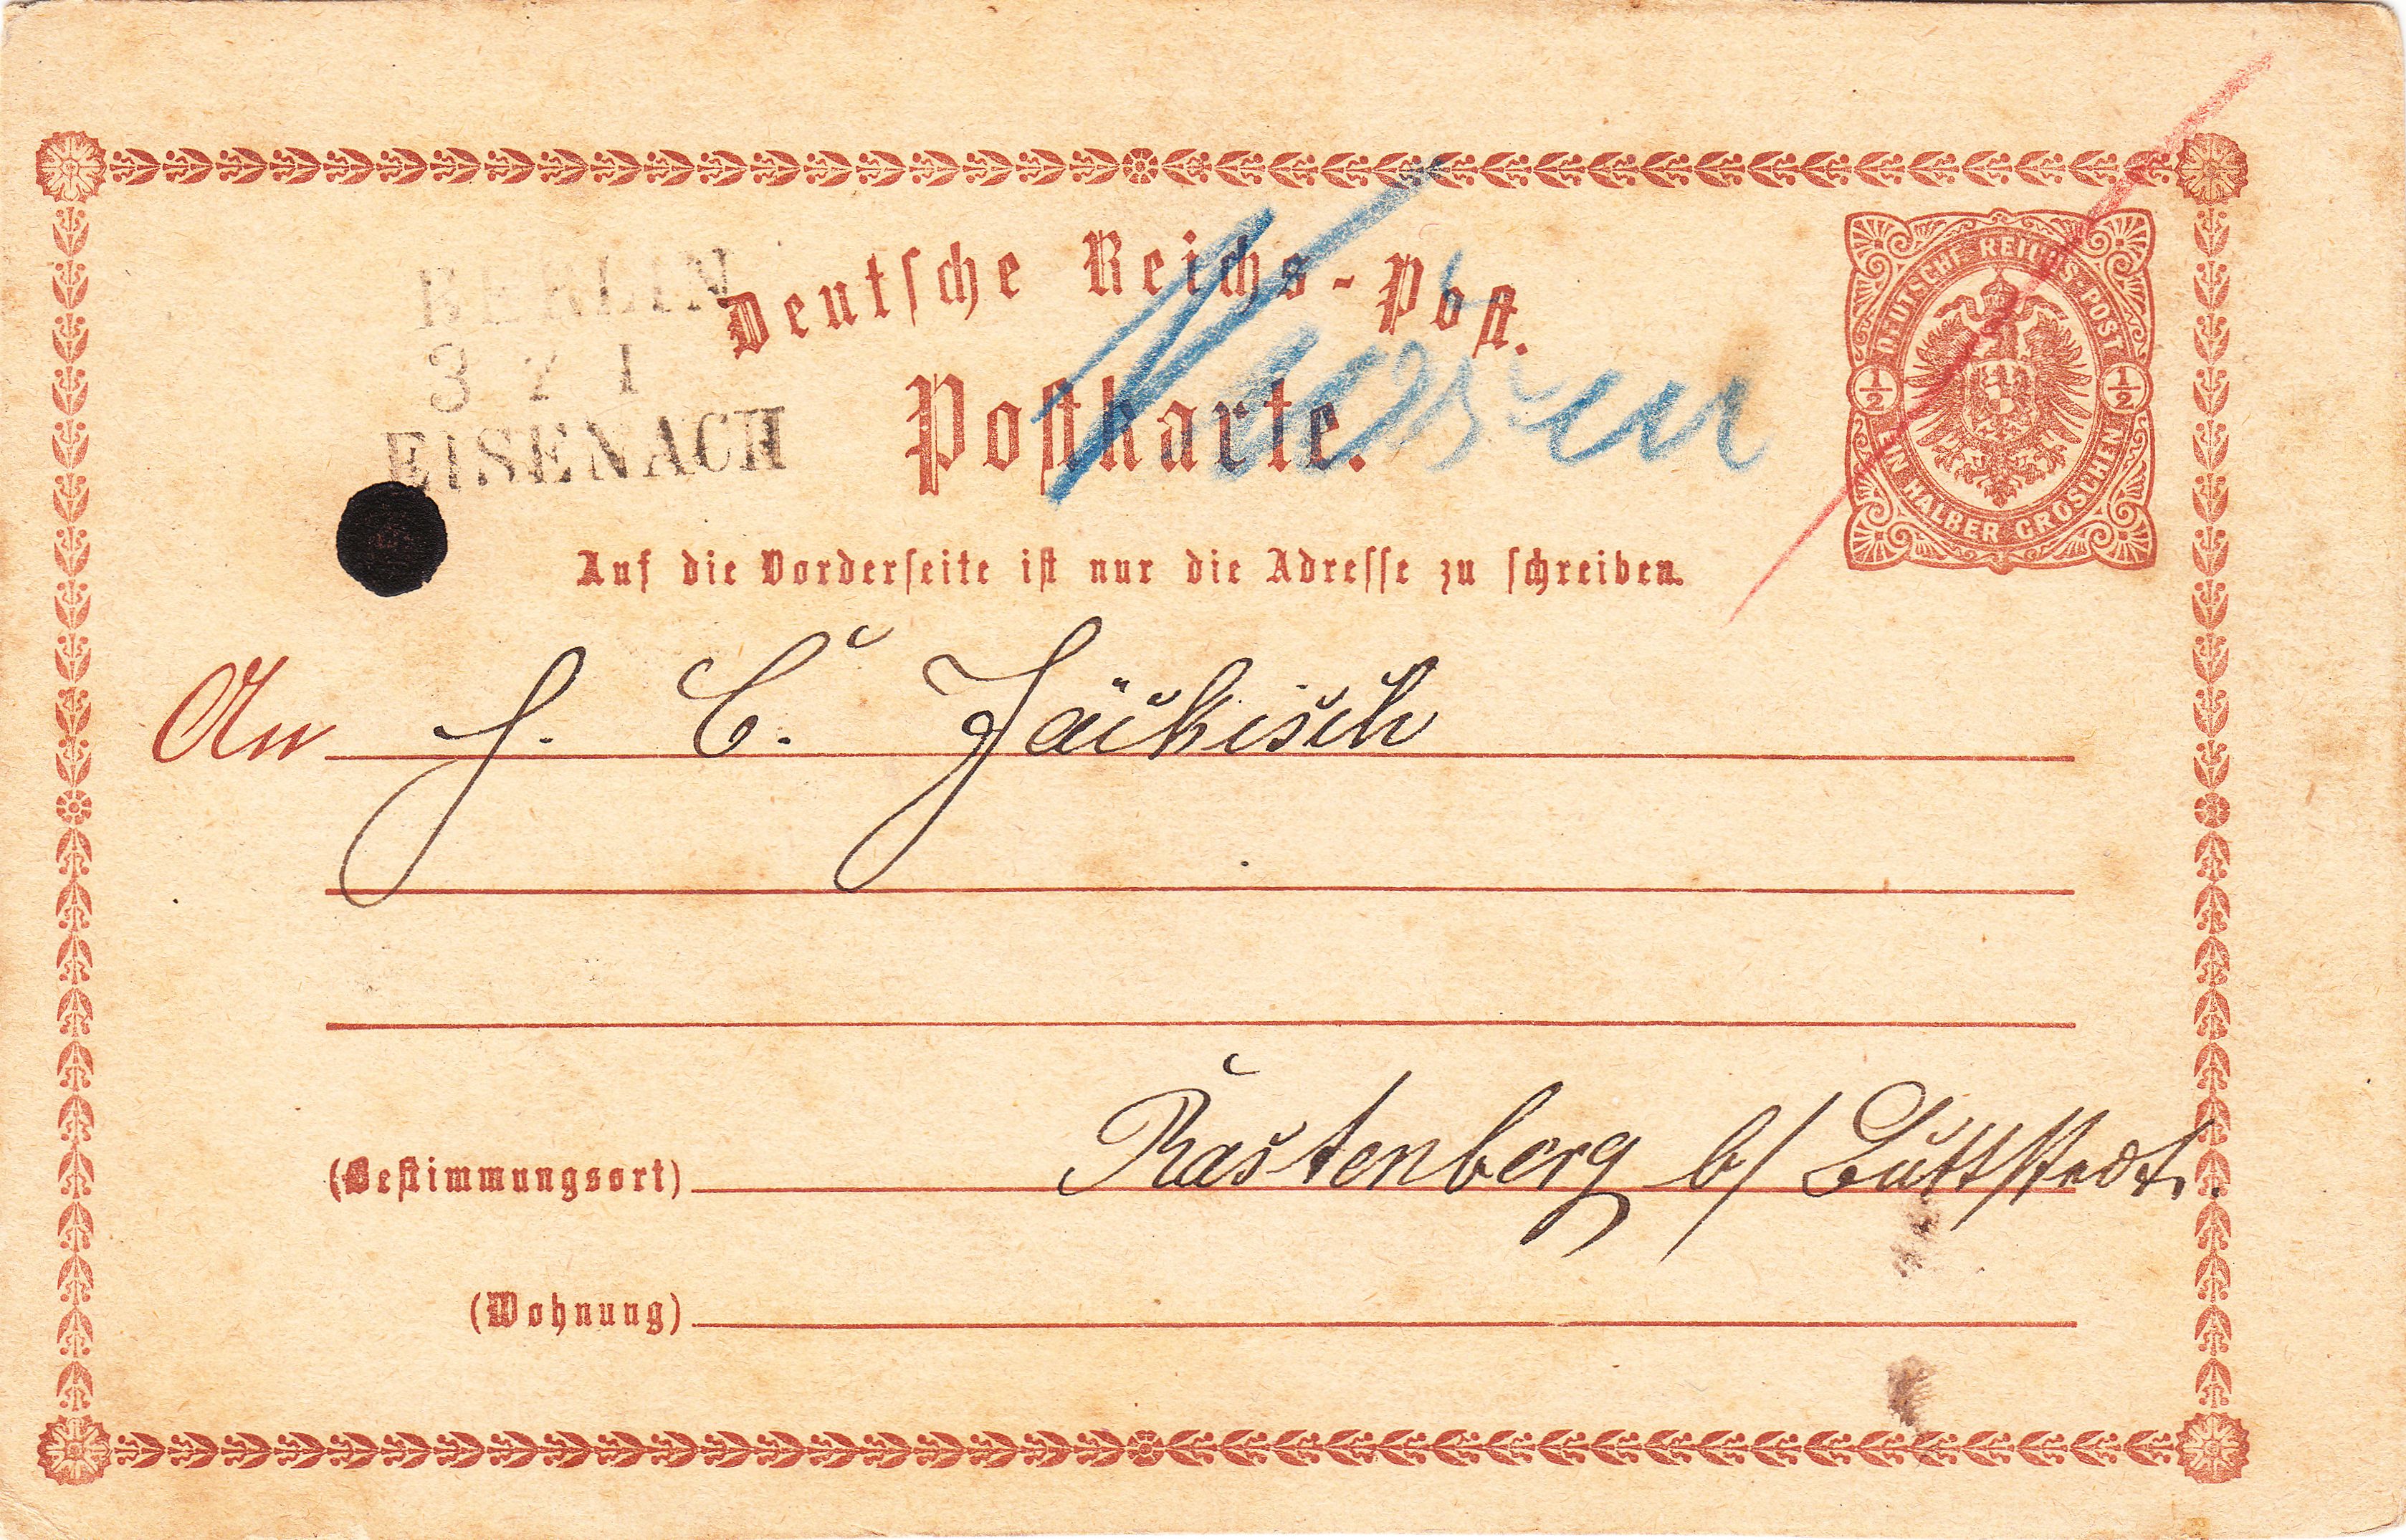 BERLIN
3 7 I
EISENACH
Deutsche Reichs-Post.
Postkarte.
DEUTSCHE REICHS-POST
1/2 1/2
EIN HALBER GROSCHEN
Auf die Vorderseite ist nur die Adresse zu schreiben.
An J. C. Jäckisch
(Bestimmungsort) Rastenberg b/ Buttstedt.
(Wohnung)